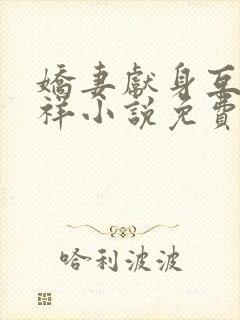 嬌妻獻身亙
祥小說免費
哈利波波